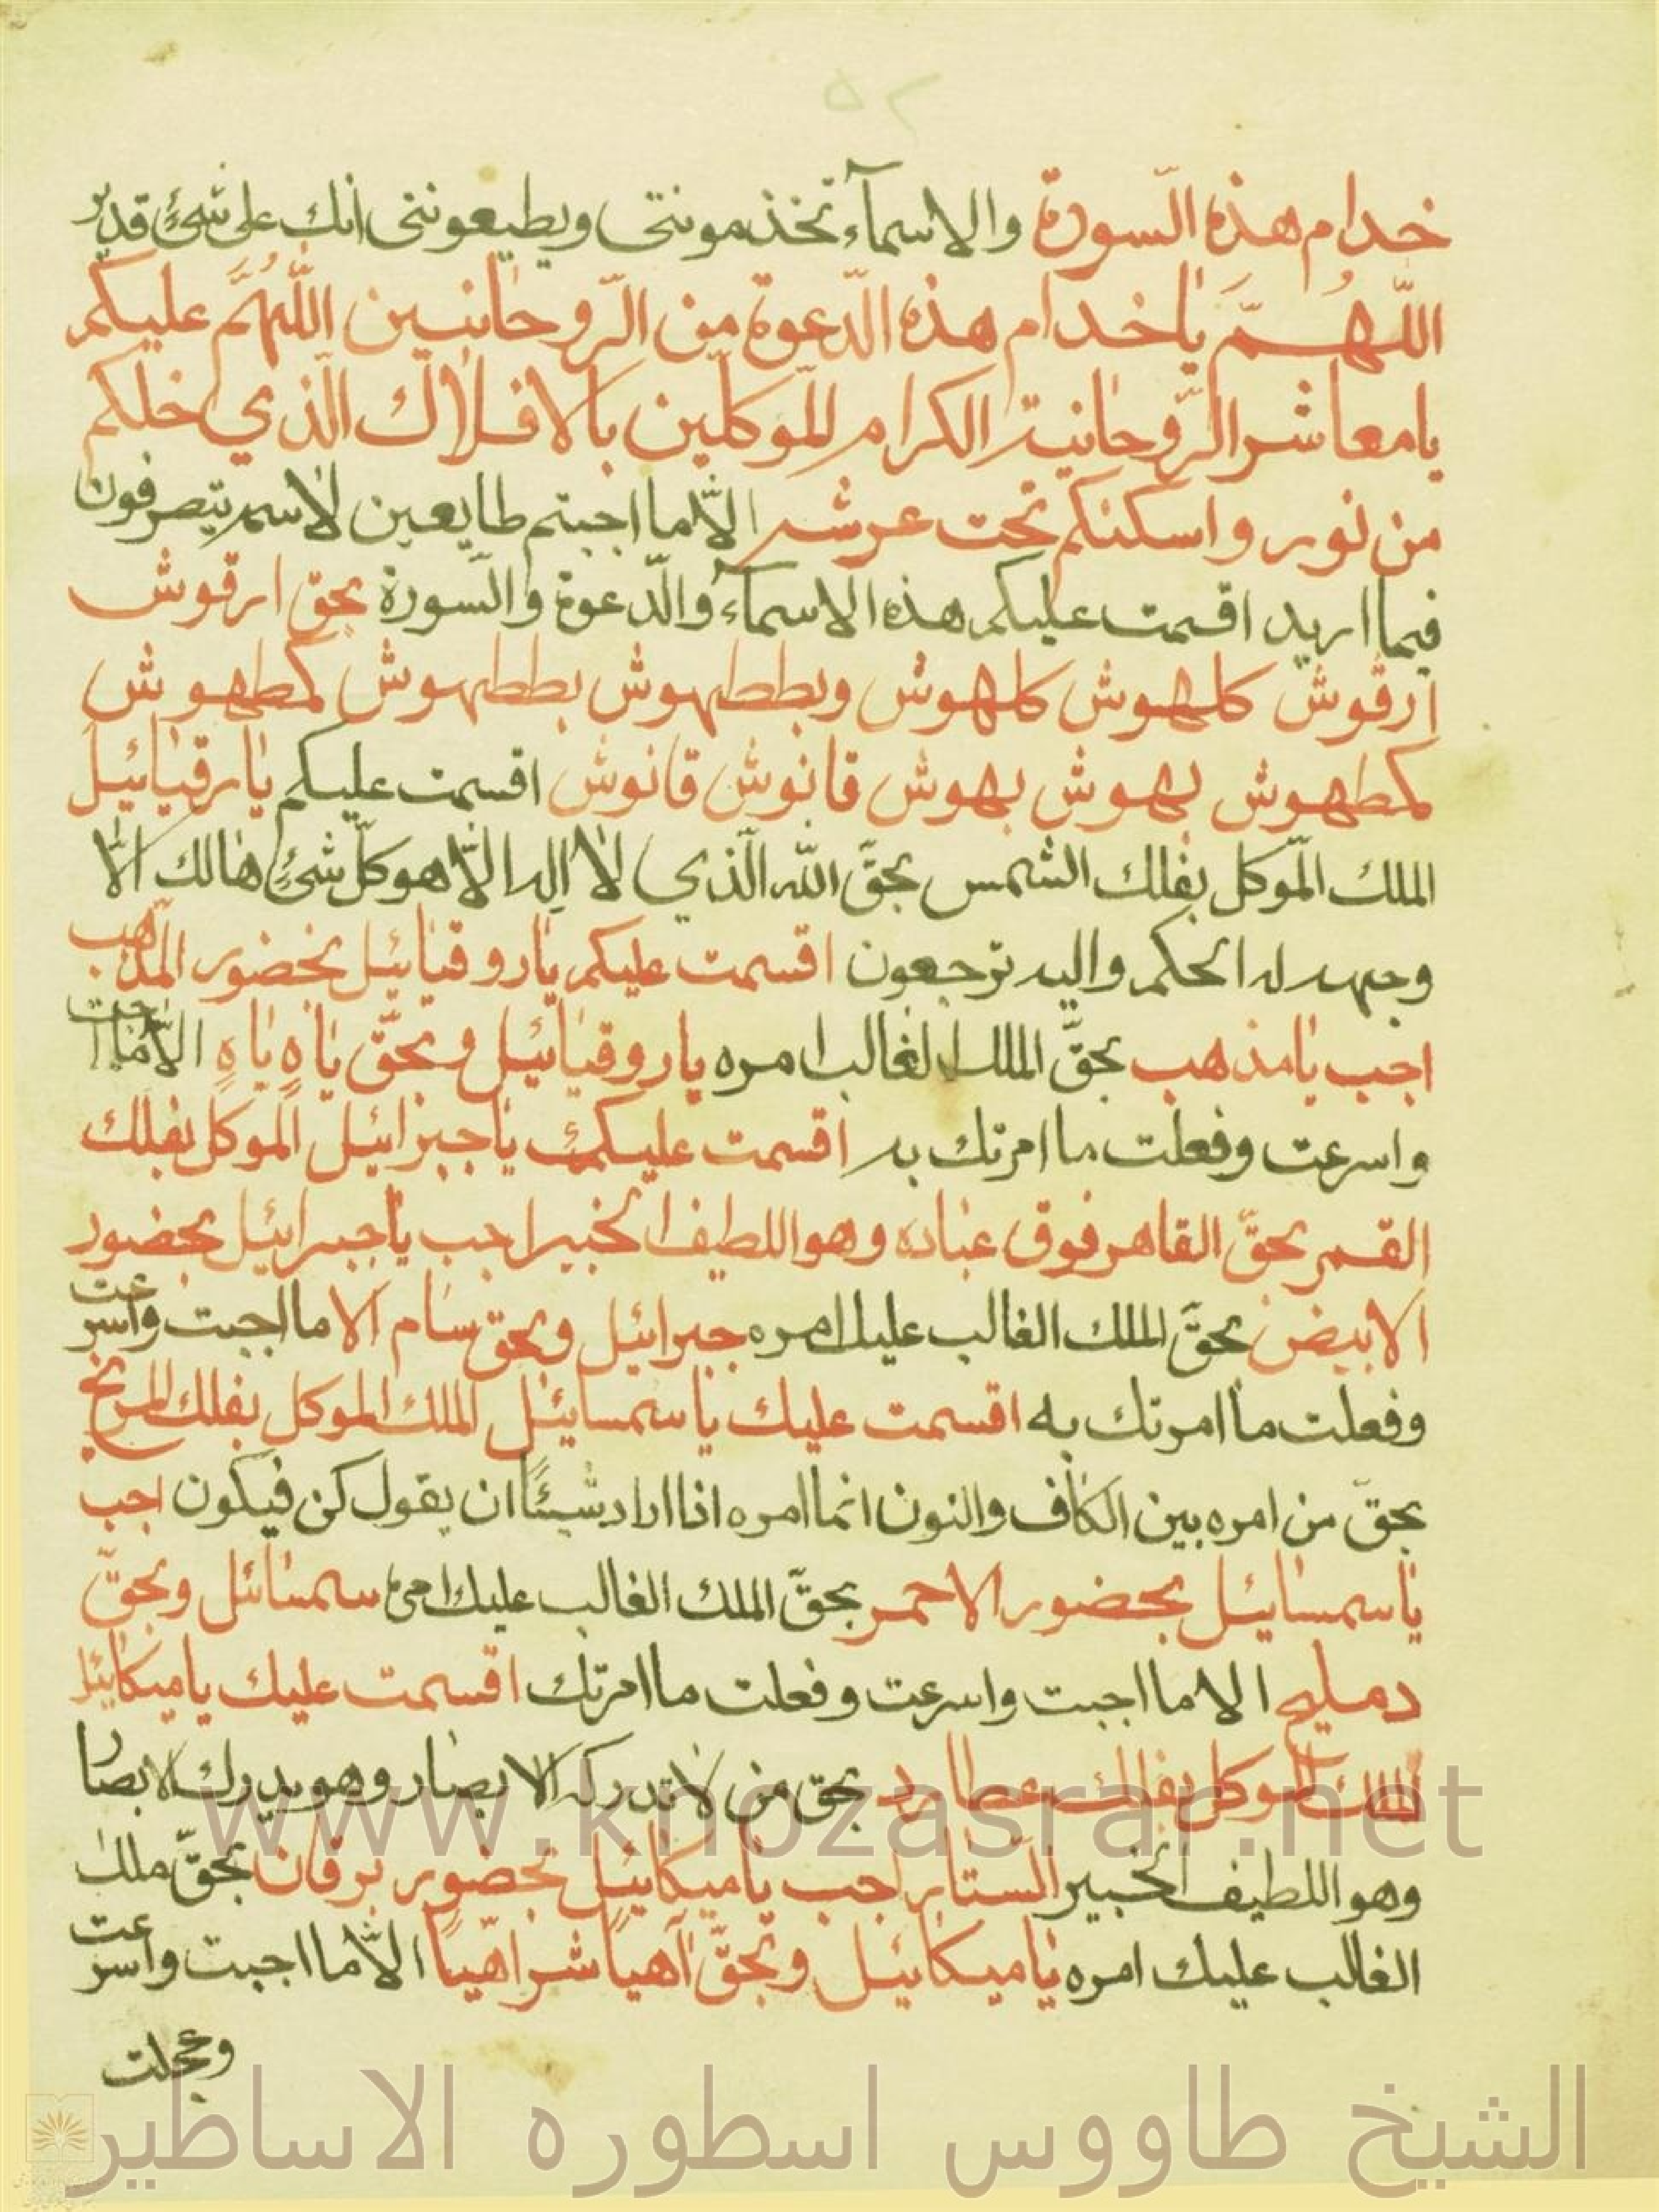 ٥٢
خدام هذه السورة والاسمآء تخذمونني ويطيعونني انك على شئ قدير
اللهم يا خدام هذه الدعوة من الروحانيين اللهم عليكم
يا معاشر الروحانية الكرام الموكلين بالافلاك الذي خلكم
من نور واسكنكم تحت عرشه الا ما اجبتم طايعين لاسم يتصرفون
فيما اريد اقسمت عليكم هذه الاسمآء والدعوة والسورة بحق ارقوش
ارقوش كلهوش كلهوش وبططهوش بططهوش كمطهوش
كمطهوش بهوش بهوش قانوش قانوش اقسمت عليكم يا رقيائيل
الملك الموكل بفلك الشمس بحق الله الذي لا اله الا هو كل شئ هالك الا
وجهه له الحكم واليه ترجعون اقسمت عليكم يا روقيائيل بحضور المذهب
اجب يا مذهب بحق الملك الغالب امره يا روقيائيل وبحق ياه ياه الا ما اجبت
واسرعت وفعلت ما امرتك به اقسمت عليك يا جبرائيل الموكل بفلك
القمر بحق القاهر فوق عباده وهو اللطيف الخبير اجب يا جبرائيل بحضور
الابيض بحق الملك الغالب عليك امره جبرائيل وبحق سام الا ما اجبت واسرعت
وفعلت ما امرتك به اقسمت عليك يا سمسائيل الملك الموكل بفلك المريخ
بحق من امره بين الكاف والنون انما امره اذا اراد شيئًا ان يقول كن فيكون اجب
يا سمسائيل بحضور الاحمر بحق الملك الغالب عليك امره سمسائل وبحق
دمليخ الا ما اجبت واسرعت وفعلت ما امرتك اقسمت عليك يا ميكائيل
الملك الموكل بفلك عطارد بحق من لا تدركه الابصار وهو يدرك الابصار
www.khozasrar.net
وهو اللطيف الخبير الستار اجب يا ميكائيل بحضور برقان بحق ملك
الغالب عليك امره يا ميكائيل وبحق آهيًا شراهيًا الا ما اجبت واسرعت
وعجلت
الشيخ طاووس اسطوره الاساطير